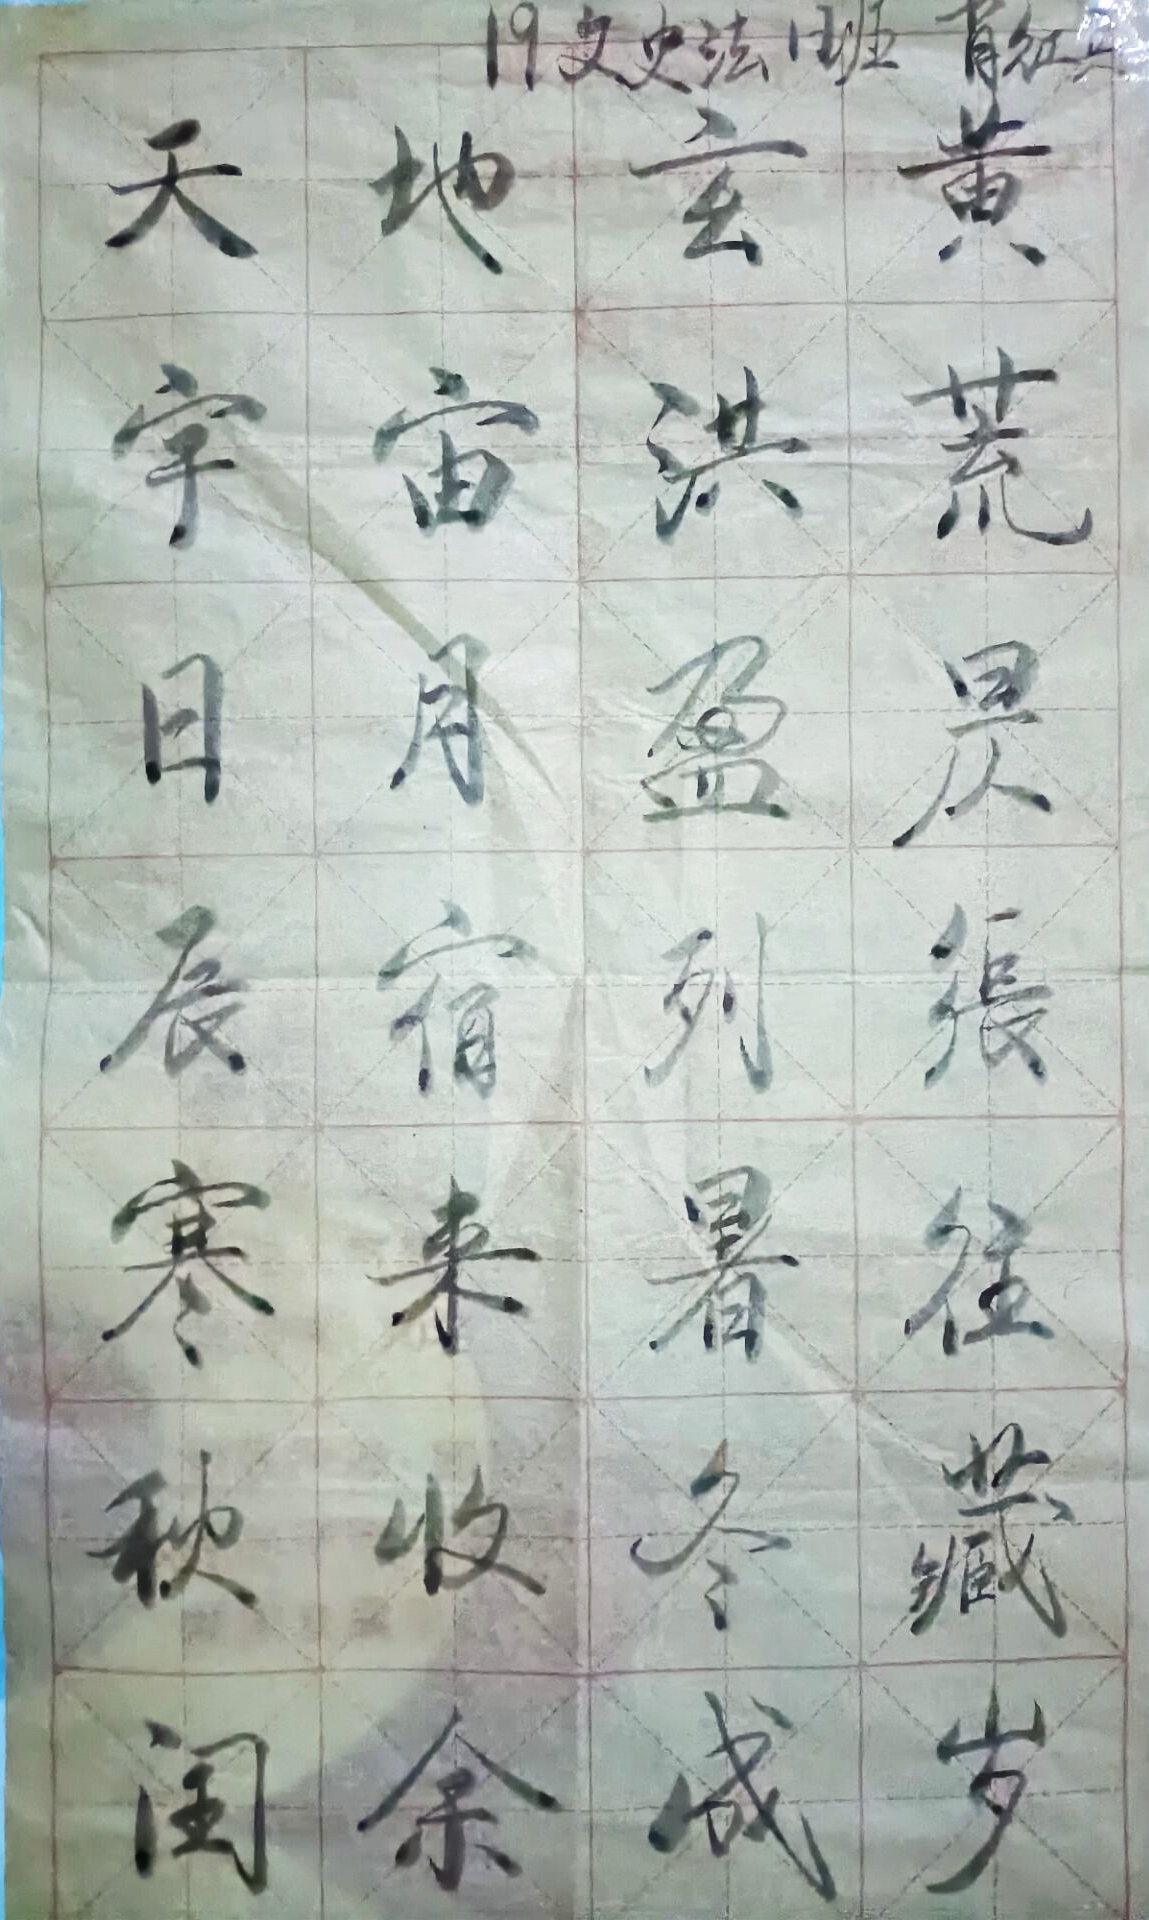 19文史法1班 肖征
天地玄黄
宇宙洪荒
日月盈昃
辰宿列張
寒来暑往
秋收冬藏
闰余成岁